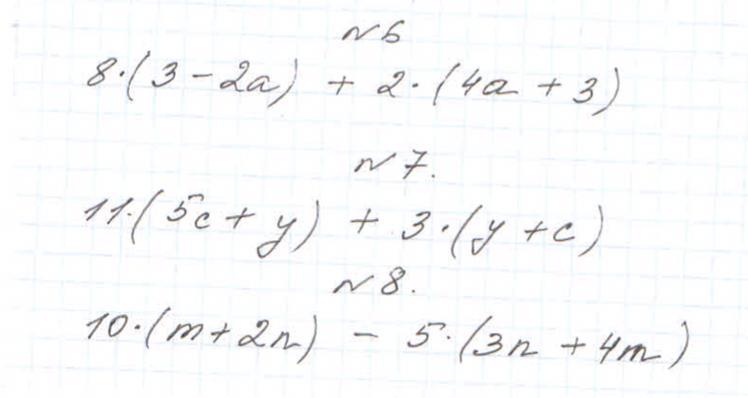 №6
8·(3-2a) + 2·(4a+3)
№7.
11·(5c+y) + 3·(y+c)
№8.
10·(m+2n) - 5·(3n+4m)